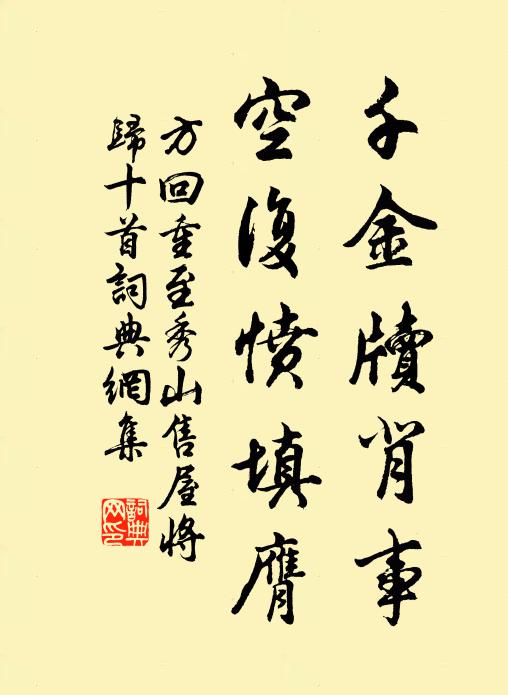 千金牘背事
空復憤填膺
方回重至秀山售屋將
歸十首詞典網集
詞典
网印